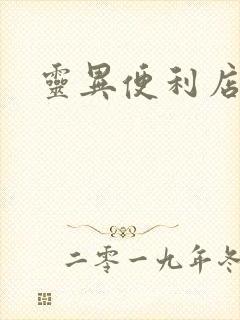 靈異便利店
二零一九年冬